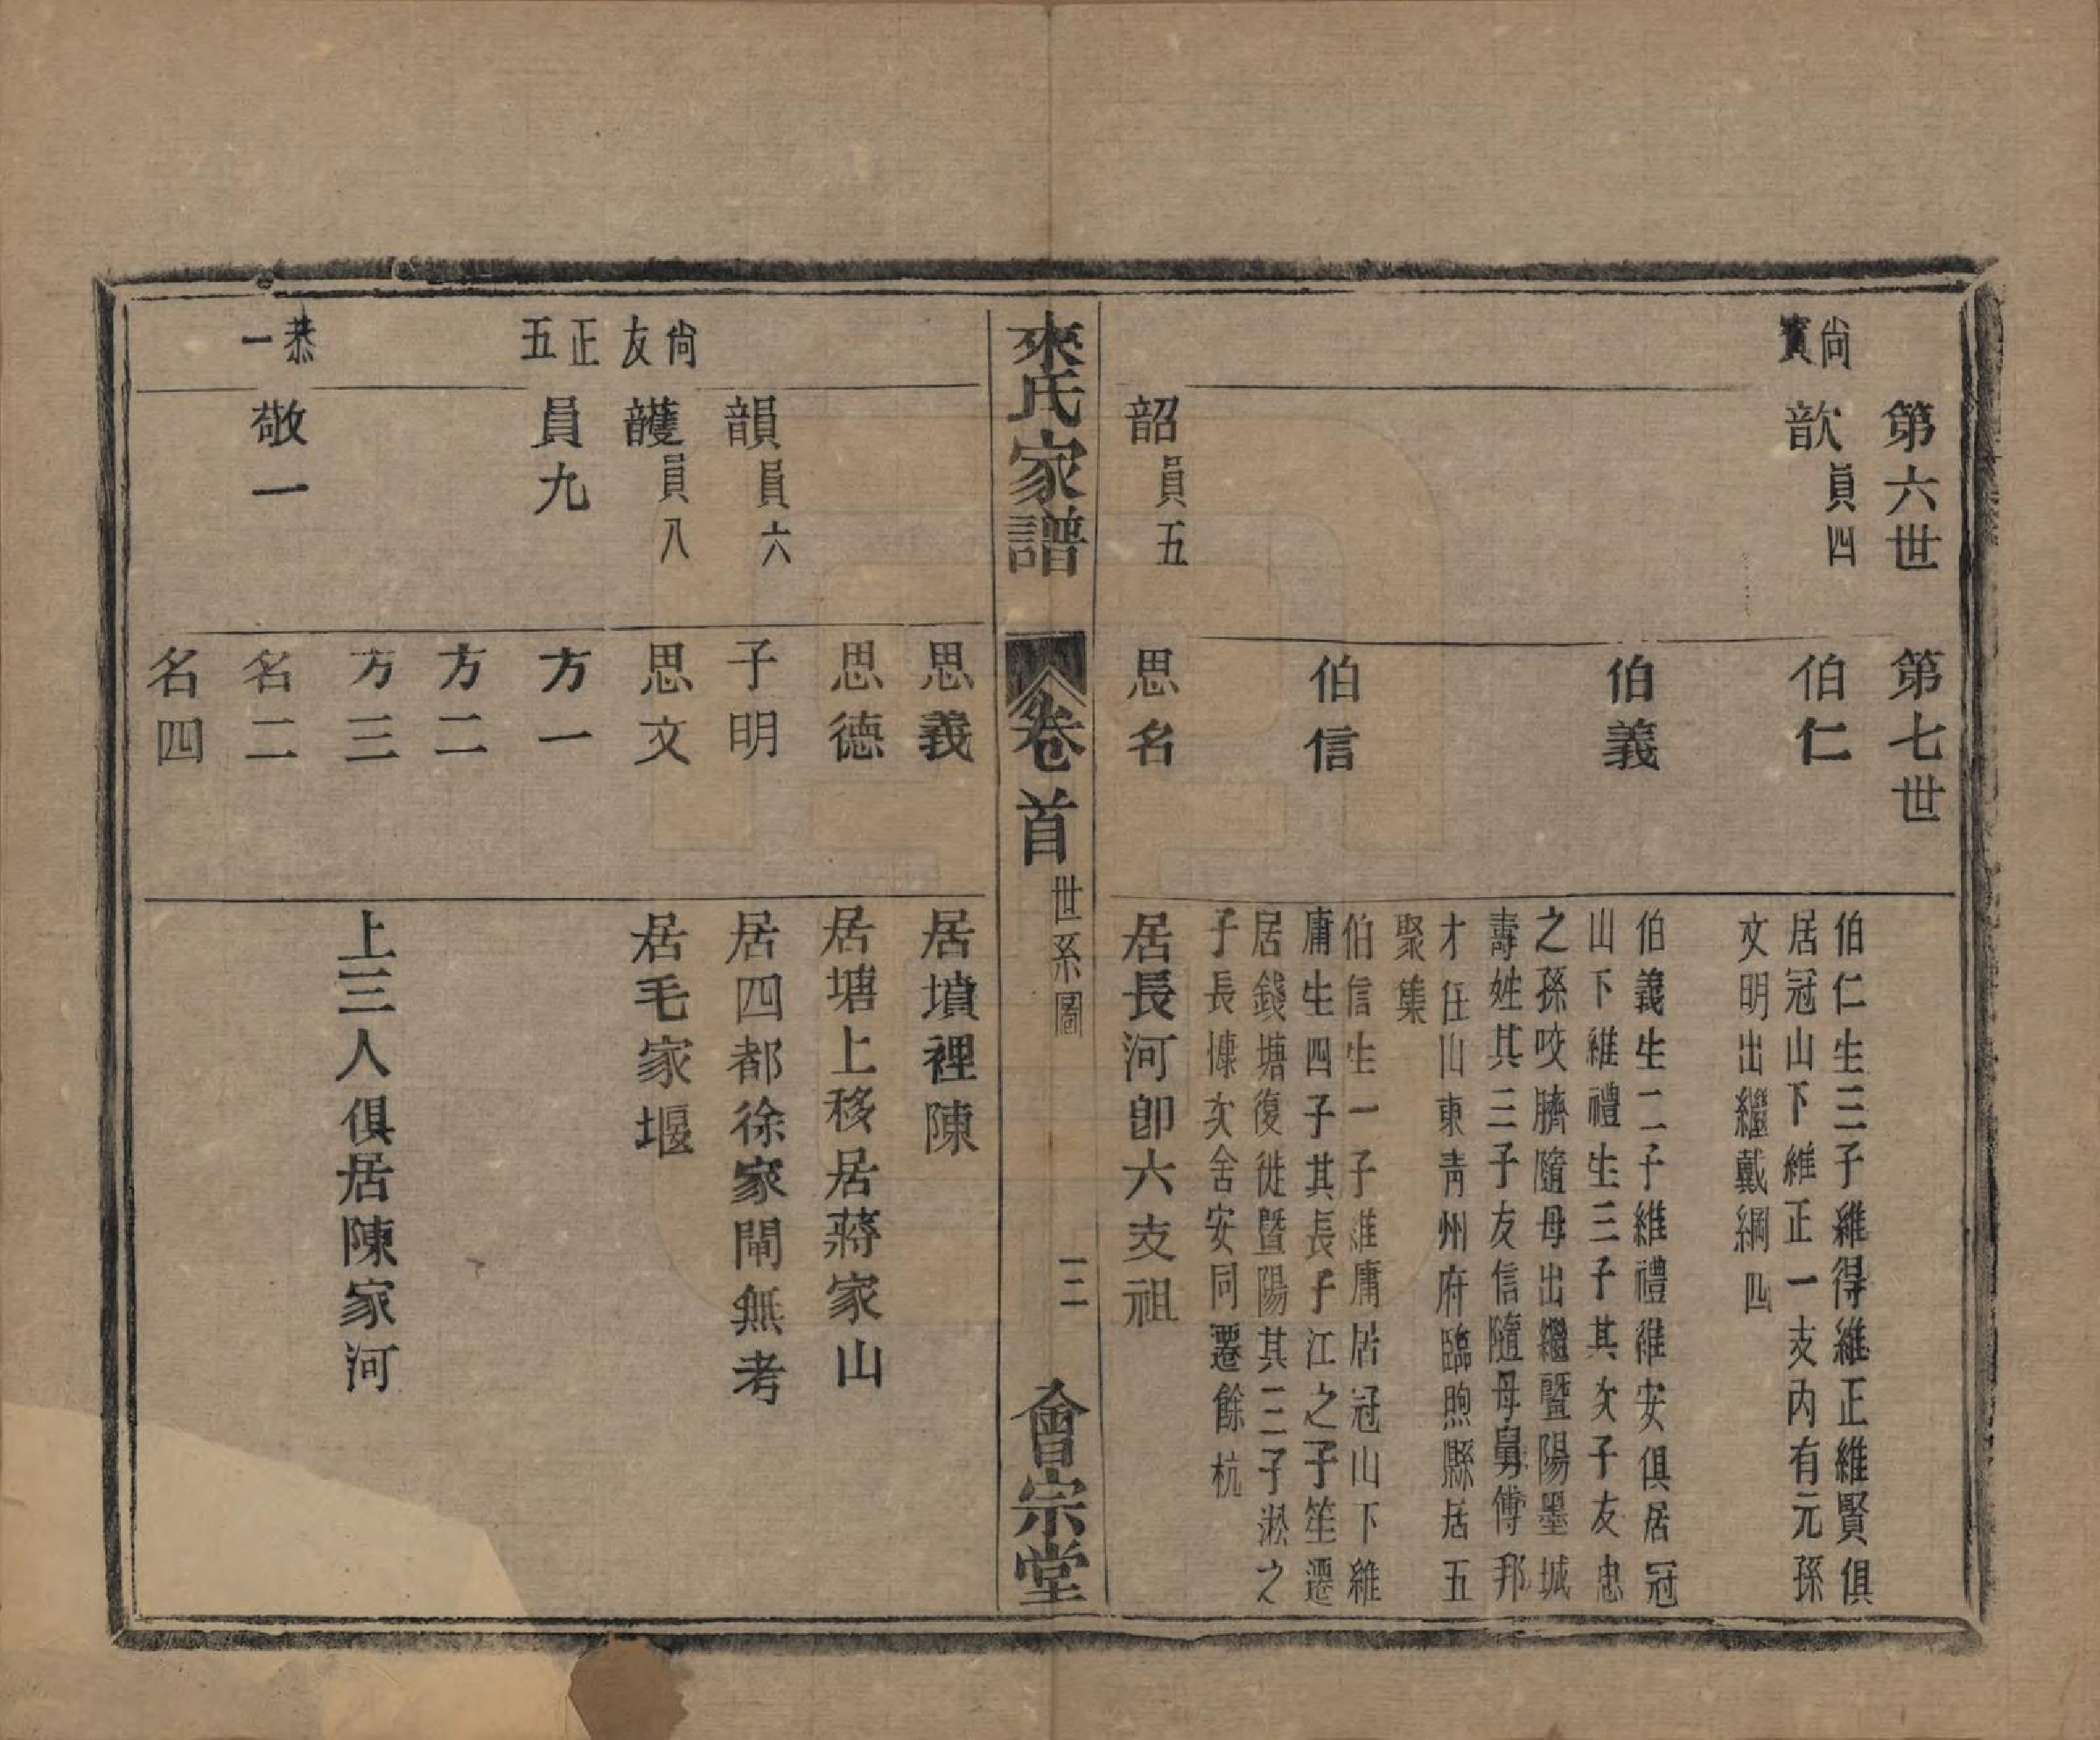 第六世
第七世
尚賓
歆 員四
伯仁
伯仁生三子維得維正維賢俱
居冠山下維正一支内有元孫
文明出繼戴綱四
伯義
伯義生二子維禮維安俱居冠
山下維禮生三子其次子友忠
之孫咬臍隨母出繼暨陽墨城
壽姓其三子友信隨母舅傅邦
才任山東靑州府臨朐縣居五
聚集
伯信
伯信生一子維庸居冠山下維
庸生四子其長子江之子笙遷
居錢塘復徙暨陽其三子淞之
子長慷次舍安同遷餘杭
韶 員五
思名
居長河卽六支祖
來氏家譜
卷首
世系圖
三
會宗堂
思義
居墳裡陳
思德
居塘上移居蔣家山
韻 員六
子明
居四都徐家閘無考
尚友
頀 員八
思文
居毛家堰
正五
員九
方一
方二
方三
上三人俱居陳家河
恭一
敬一
名二
名四